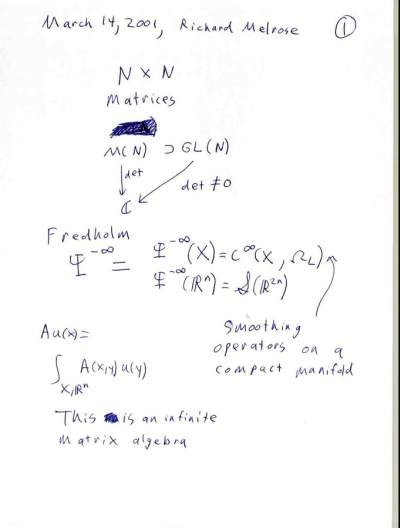 March 14, 2001, Richard Melrose ①
N × N
Matrices
M(N) ⊃ GL(N)
det
det ≠ 0
ℂ
Fredholm
Ψ^{-∞} = Ψ^{-∞}(X) = C^∞(X, Ω_L)
Ψ^{-∞}(ℝ^n) = 𝒮(ℝ^{2n})
Smoothing
operators on a
compact manifold
Au(x) =
∫_{X,ℝ^n} A(x,y) u(y)
This is an infinite
matrix algebra